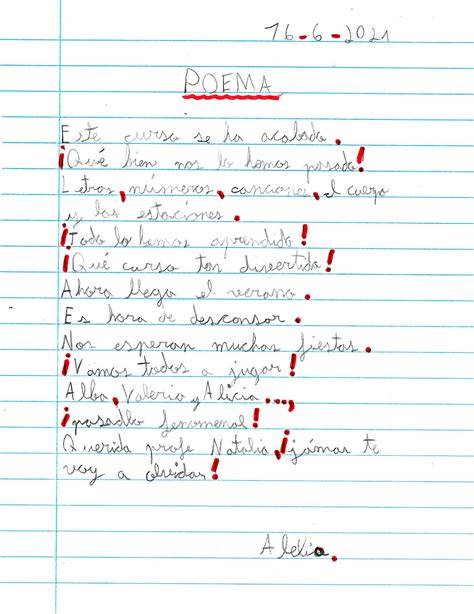 16-6-2021
POEMA
Este curso se ha acabado.
¡Qué bien nos lo hemos pasado!
Letras, números, canciones, el cuerpo
y las estaciones.
¡Todo lo hemos aprendido!
¡Qué curso tan divertido!
Ahora llega el verano.
Es hora de descansar.
Nos esperan muchas fiestas.
¡Vamos todos a jugar!
Alba, Valeria y Alicia...,
¡pasadlo fenomenal!
Querida profe Natalia, ¡jamás te
voy a olvidar!
Alexia.